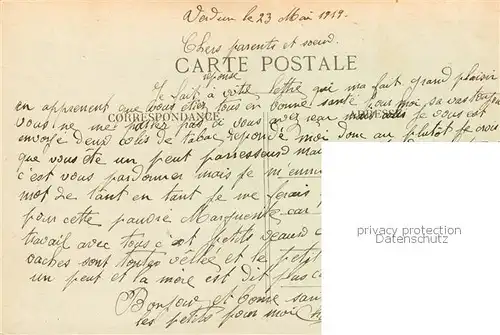 Verdun le 23 Mai 1919.
Chers parents et soeur.
CARTE POSTALE
Je fait réponse à votre lettre qui ma fait grand plaisir
en apprenent que vous etiez tous en bonne santé moi sa va toujours
CORRESPONDANCE
vous ne me parlez pas si vous avez reçu je vous est
envoyé deux colis de tabac reponde moi donc au plutot je crois
que vous été un peut paresseux mai
c'est vous pardonner mais je m'ennui
mot de tant en tant je me ferais
pour cette pauvre Marguerite car
travail avec tous c est petits veaux
vaches sont toutes vélée et le petit
un peut et la mère est dit plus
Bonjour et bonne san
les petits pour moi
privacy protection
Datenschutz